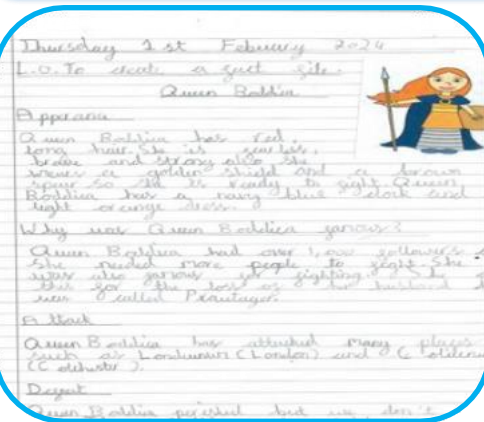 Thursday 1st February 2024
L.O. To create a fact file.
Queen Boddica
Apperance
Queen Boddica has red,
long hair. She is fearless,
brave and strong also she
wears a golden shield and a brown
spear so she is ready to fight. Queen
Boddica has a navy blue cloak and
light orange dress.
Why was Queen Boddica famous?
Queen Boddica had over 1,000 followers
she needed more people to fight. She
was also famous for fighting. She
this for the loss of her husband
was called Prautagus.
Attack
Queen Boddica has attacked many places
such as Londinium (London) and
(Colchester).
Defeat
Queen Boddica perished but we don't